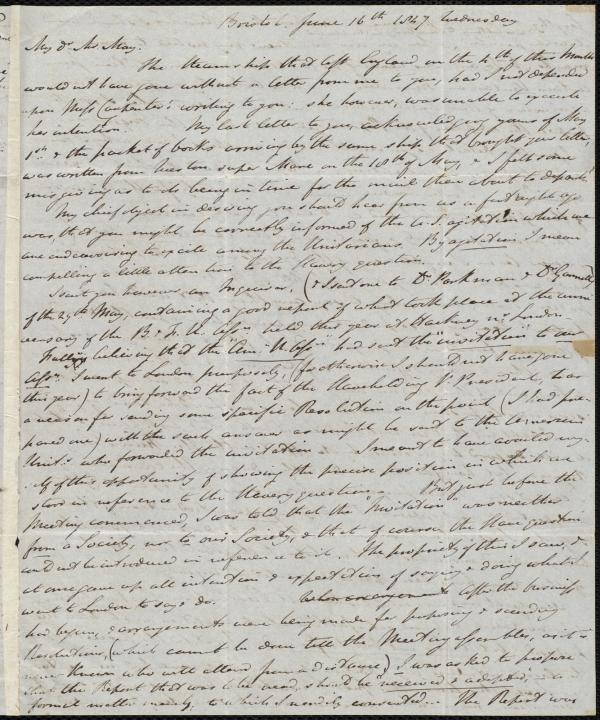 Bristol June 16th 1847 Wednesday
My dr Mr May.
The Steam ship that left England on the 4th of this Month
would not have gone without a letter from me to you, had I not depended
upon Miss Carpenter's writing to you: she however, was unable to execute
her intention. My last letter to you, acknowledging yours of May
1st & the packet of books arriving by the same ship that brought your letter,
was written from Weston super Mare on the 18th of May, & I felt some
misgiving as to its being in time for the mail then about to depart.
My chief object in desiring you should hear from us a fortnight ago
was, that you might be correctly informed of the A. S. agitation which we
are endeavouring to excite among the Unitarians. By agitation I mean
compelling a little attention to the Slavery question.
I sent you however an Inquirer, (& I sent one to Dr Parkman & Dr Gannett)
of the 29th May, containing a good report of what took place at the anni
versary of the B. & F. U. Assn held this year at Hackney nr London.
Fully believing that the "Am. U. Assn" had sent the "invitation" to our
Assn, I went to London purposely, (for otherwise I should not have gone
this year) to bring forward the fact of the Slaveholding V. President, as
a reason for sending some specific Resolution on the point (I had pre
pared one) with the such answer as might be sent to the American
Unitns who forwarded the invitation. I meant to have availed my
self of this opportunity of showing the precise position in which we
stood in reference to the Slavery question. But just before the
Meeting commenced, I was told that the Invitation was neither
from a Society, nor to our Society, & that of course the Slave question
could not be introduced in reference to it. The propriety of this I saw, &
at once gave up all intention & expectation of saying & doing what I
went to London to say & do. When arrangements after the business
had begun, & arrangements were being made for proposing & seconding
Resolutions, (which cannot be done till the Meeting assembles, as it is
never known who will attend from a distance) I was asked to propose
that the Report that was to be read, should be "received & adopted, a
formal matter merely, to which I readily consented. The Report was